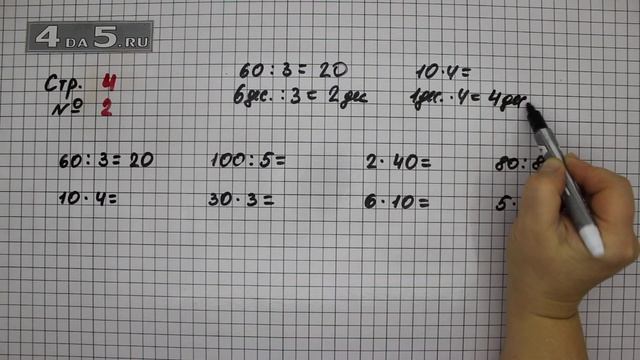 4DA5.RU
Стр. 4
№ 2
60 : 3 = 20 10 · 4 =
6 дес. : 3 = 2 дес 1 дес. · 4 = 4 дес
60 : 3 = 20 100 : 5 = 2 · 40 = 80 : 8
10 · 4 = 30 · 3 = 6 · 10 = 5 ·